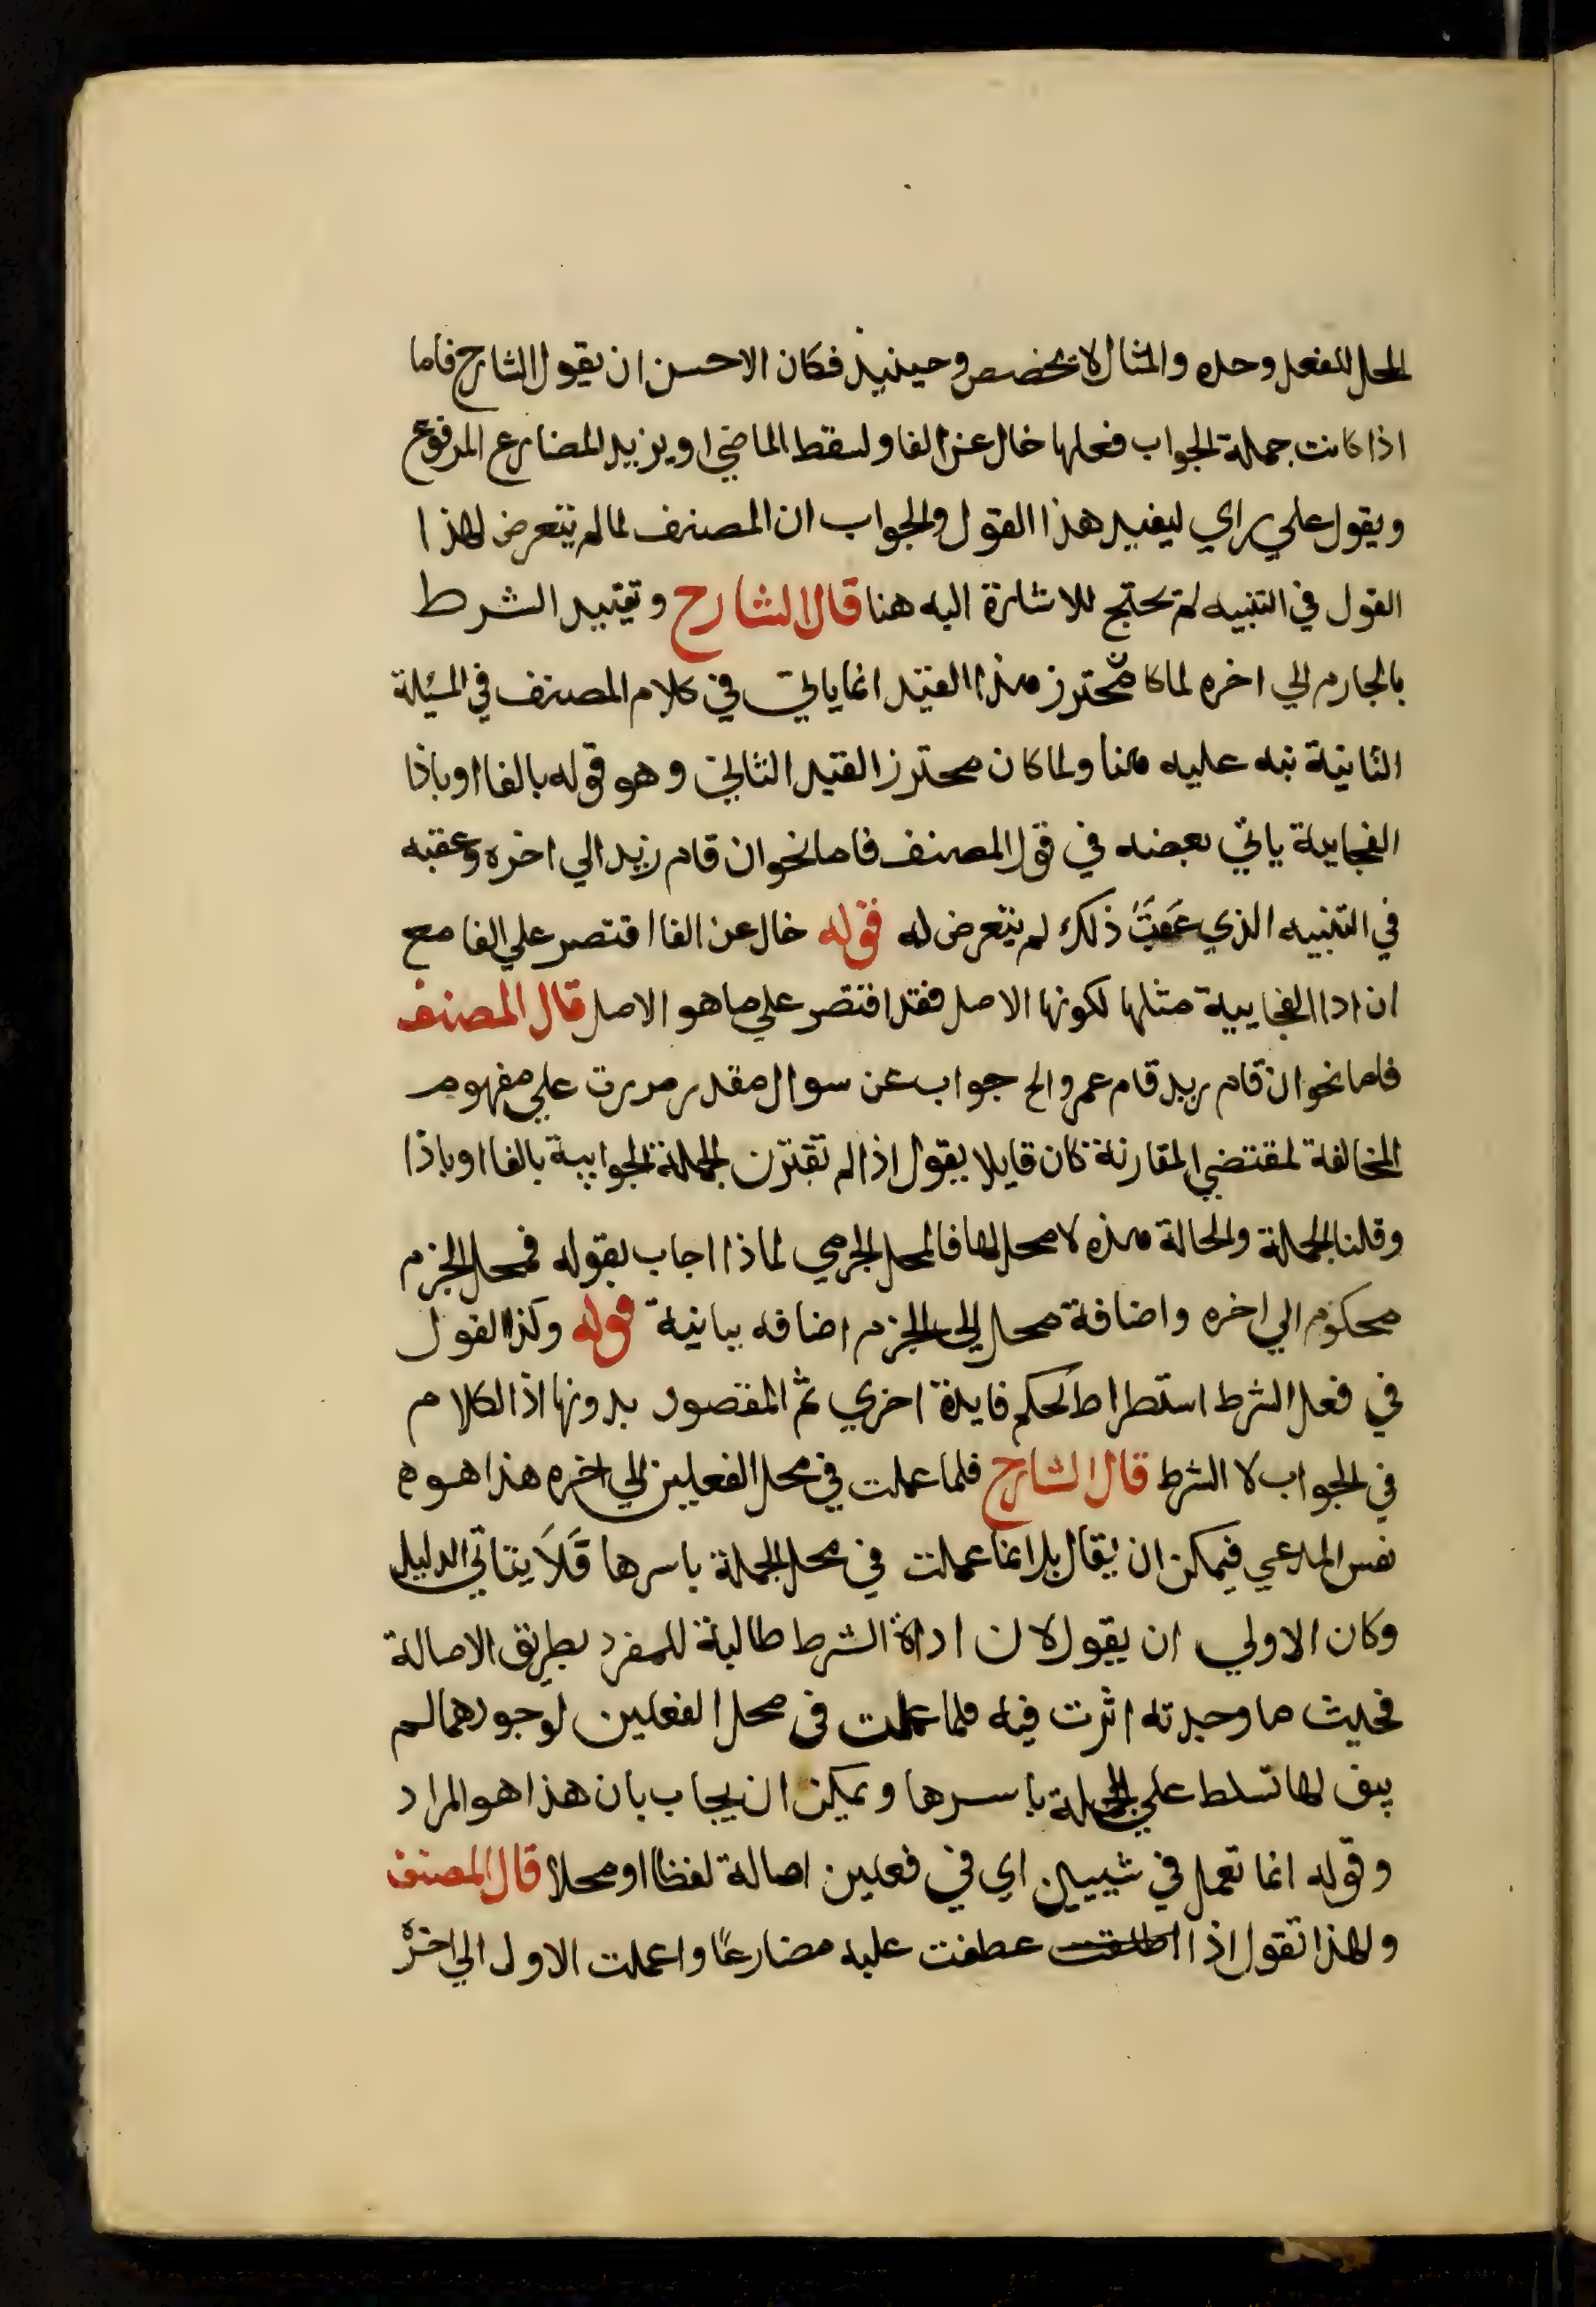 المحل للفعل وحده والمثال لا يخصص وحينيذ فكان الاحسن ان يقول الشارح فاما
اذا كانت جملة الجواب فعلها خال عن الفا ولسقط الماضي او يزيد المضارع المرفوع
ويقول علي راي ليفيد هذا القول والجواب ان المصنف لما لم يتعرض لهذا
القول في التنبيه لم يحتج للاشارة اليه هنا قال الشارح وتقييد الشرط
بالجازم الي اخره لما كان محترز هذا القيد انما ياتي في كلام المصنف في المسيلة
الثانية نبه عليه هنا ولما كان محترز القيد الثاني وهو قوله بالفا او باذا
الفجايية ياتي بعضه في قول المصنف فاما نحو ان قام زيد الي اخره وعقبه
في التنبيه الذي عَقبَ ذلك لم يتعرض له قوله خال عن الفا اقتصر علي الفا مع
ان اذا الفجايية مثلها لكونها الاصل فقد اقتصر علي ما هو الاصل قال المصنف
فاما نحو ان قام زيد قام عمرو الخ جواب عن سوال مقدر مرتب علي مفهوم
المخالفة لمقتضي المقارنة كان قايلا يقول اذا لم تقترن الجملة الجوابية بالفا او باذا
وقلنا الجملة والحالة هذه لا محل لها فالمحل الجزمي لماذا اجاب بقوله فمحل الجزم
محكوم الي اخره واضافة محل الي الجزم اضافه بيانية قوله وكذا القول
في فعل الشرط استطراط لحكم فايدة اخري ثم المقصود بدونها اذ الكلام
في الجواب لا الشرط قال الشارح فلما عملت في محل الفعلين الي اخره هذا هو
نفس المدعي فيمكن ان يقال بل انما عملت في محل الجملة باسرها فَلَا يتاتي الدليل
وكان الاولي ان يقول لان اداة الشرط طالبة للمفرد بطريق الاصالة
فحيث ما وجدته اثرت فيه فلما عملت في محل الفعلين لوجودهما لم
يبق لها تسلط علي الجملة باسرها ويمكن ان يجاب بان هذا هو المراد
وقوله انما تعمل في شييين اي في فعلين اصالة لفظا او محلا قال المصنف
ولهذا تقول اذا عطفت عليه مضارعًا واعملت الاول الي اخره